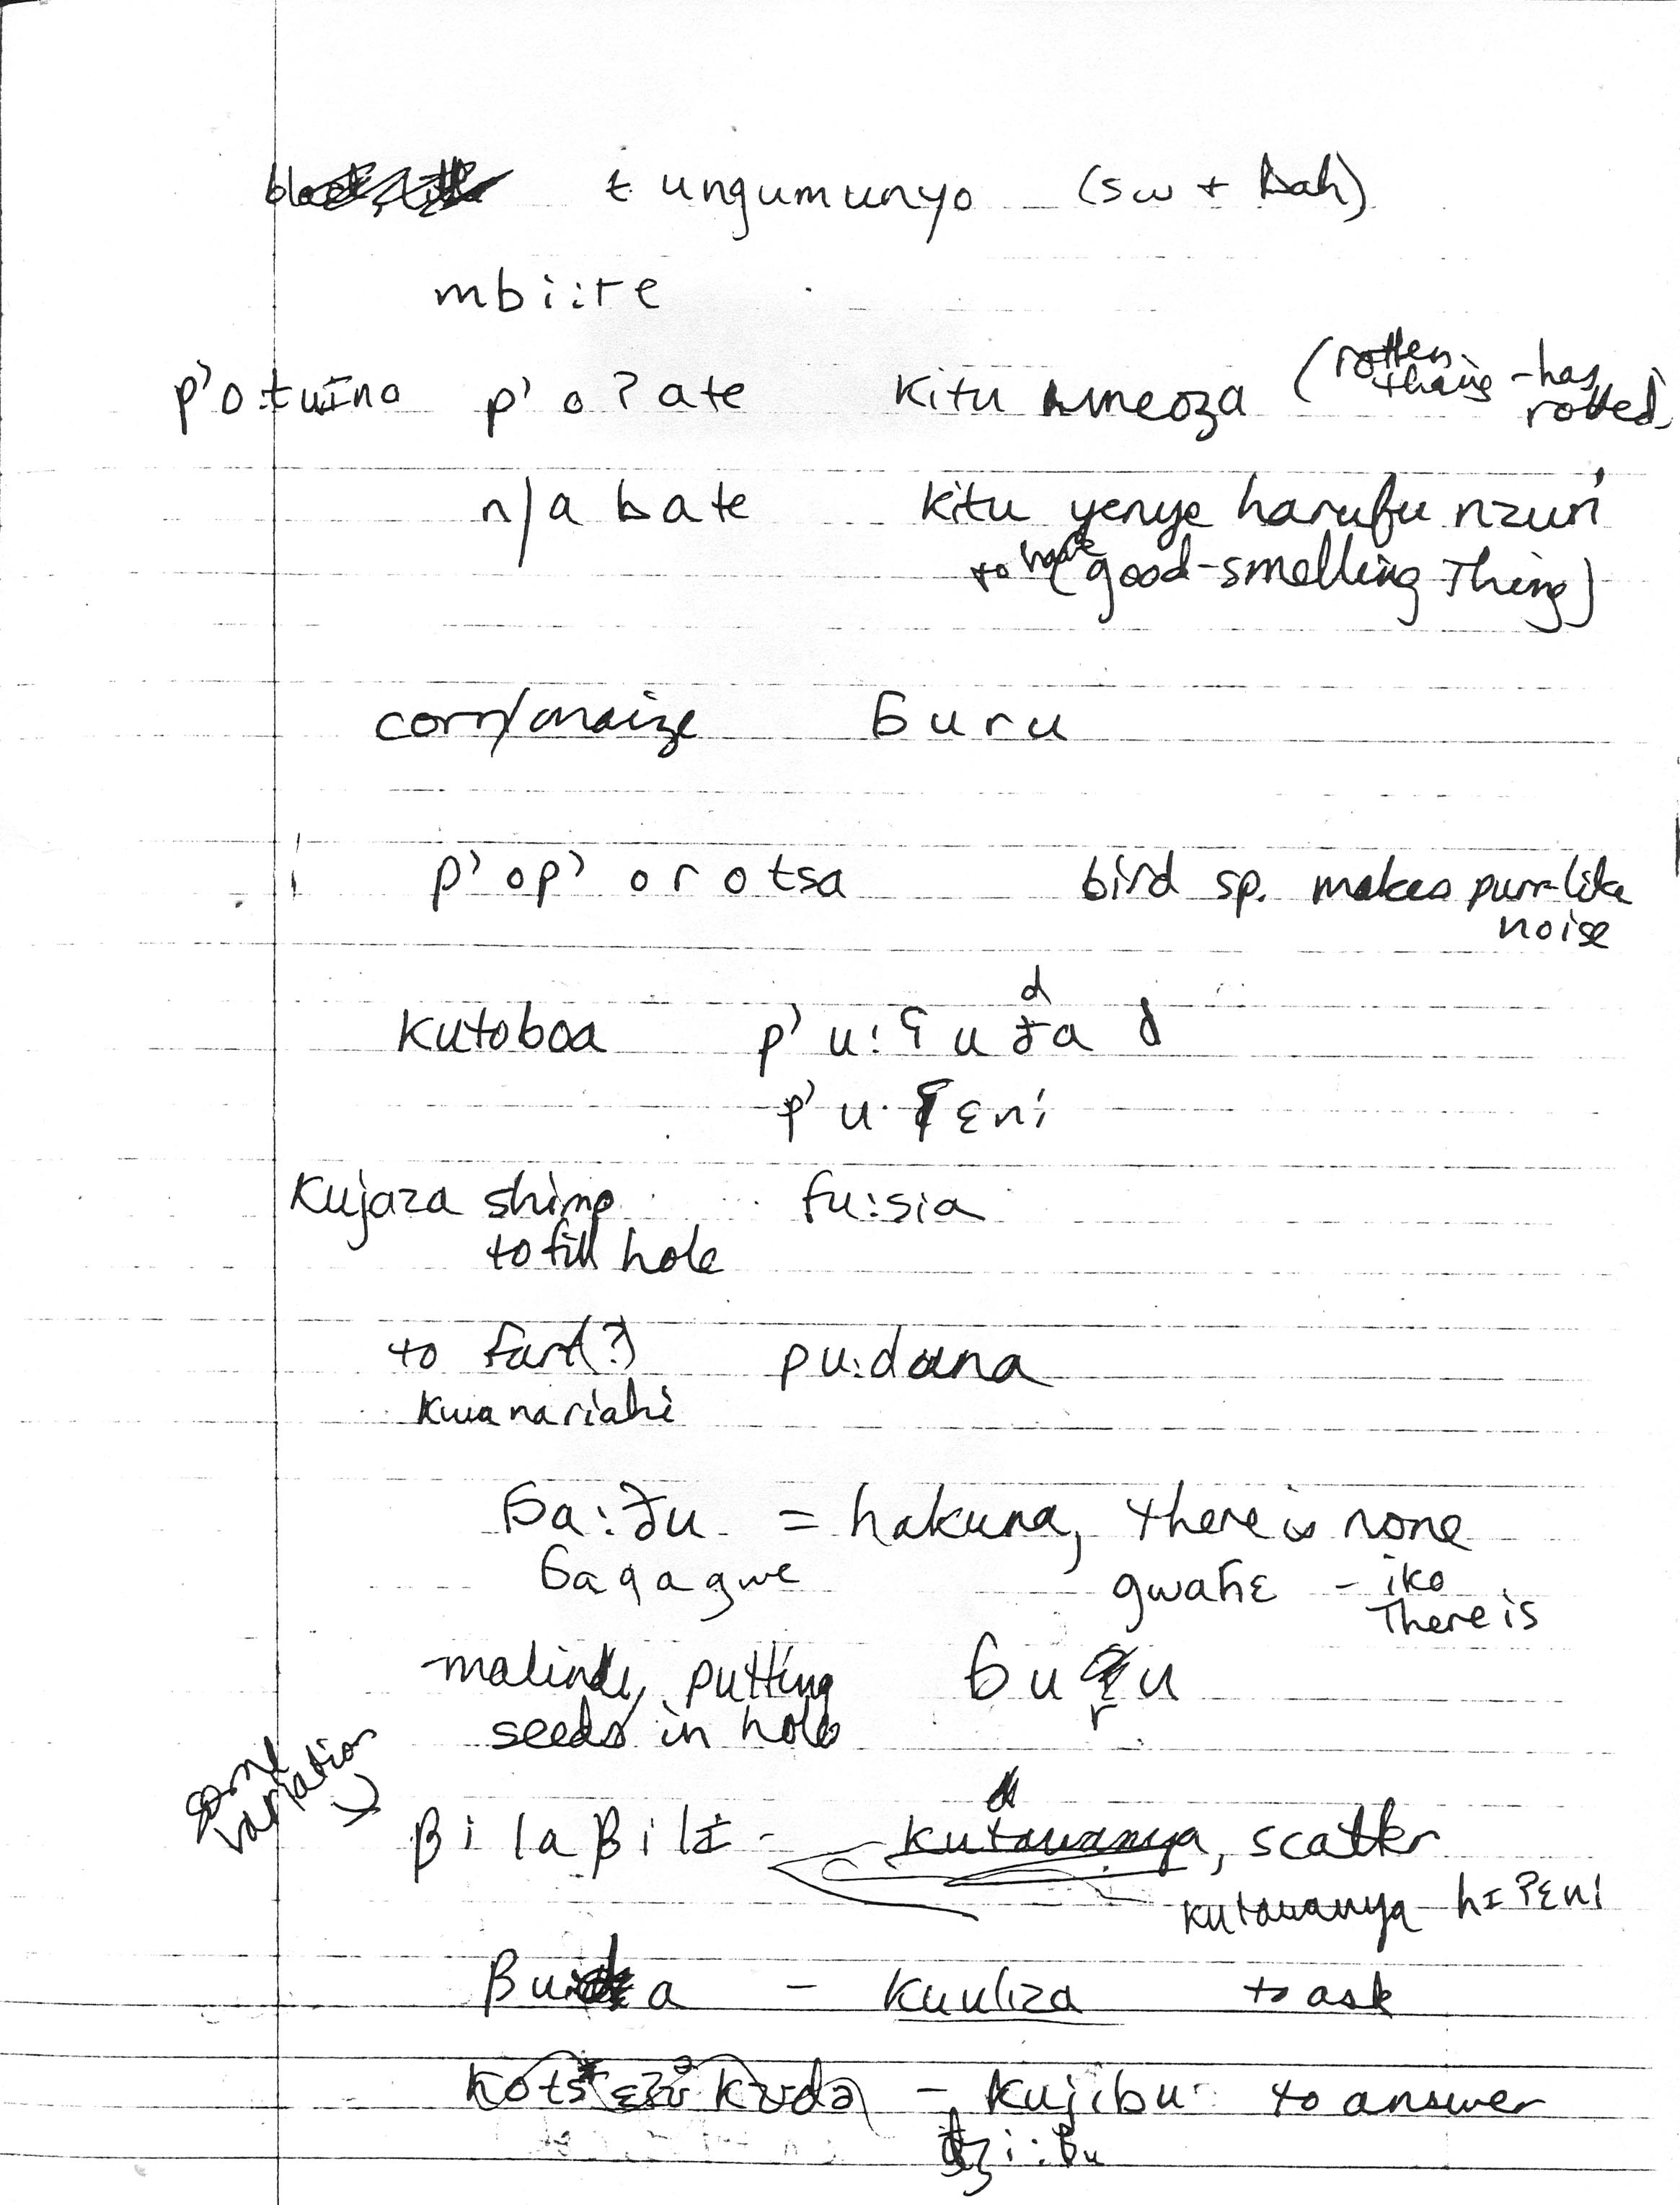 tungumunyo (sw + Dah)
mbi:te
p'o:tuɪna p'oʔate kitu umeoza (rotten thing - has rotted)
n/abate kitu yenye harufu nzuri
to have (good-smelling thing)
corn/maize ɓuru
p'op'orotsa bird sp. makes purr-like
noise
d
kutoboa p'u:ʕuɗa d
p'u·ʕɛni
kujaza shimo fu:sia
to fill hole
to fart(?) pu:daana
kwanariahi
ɓa:ʔu = hakuna, there is none
ɓaqagwe gwaɦɛ - iko
There is
malindi, putting ɓu u
seeds in hole r
some
variation
βilaβilɪ - kutawanya, scatter
kutawanya hɪʔɛni
βu a - kuuliza to ask
kʊdə - kujibu to answer
i:βu